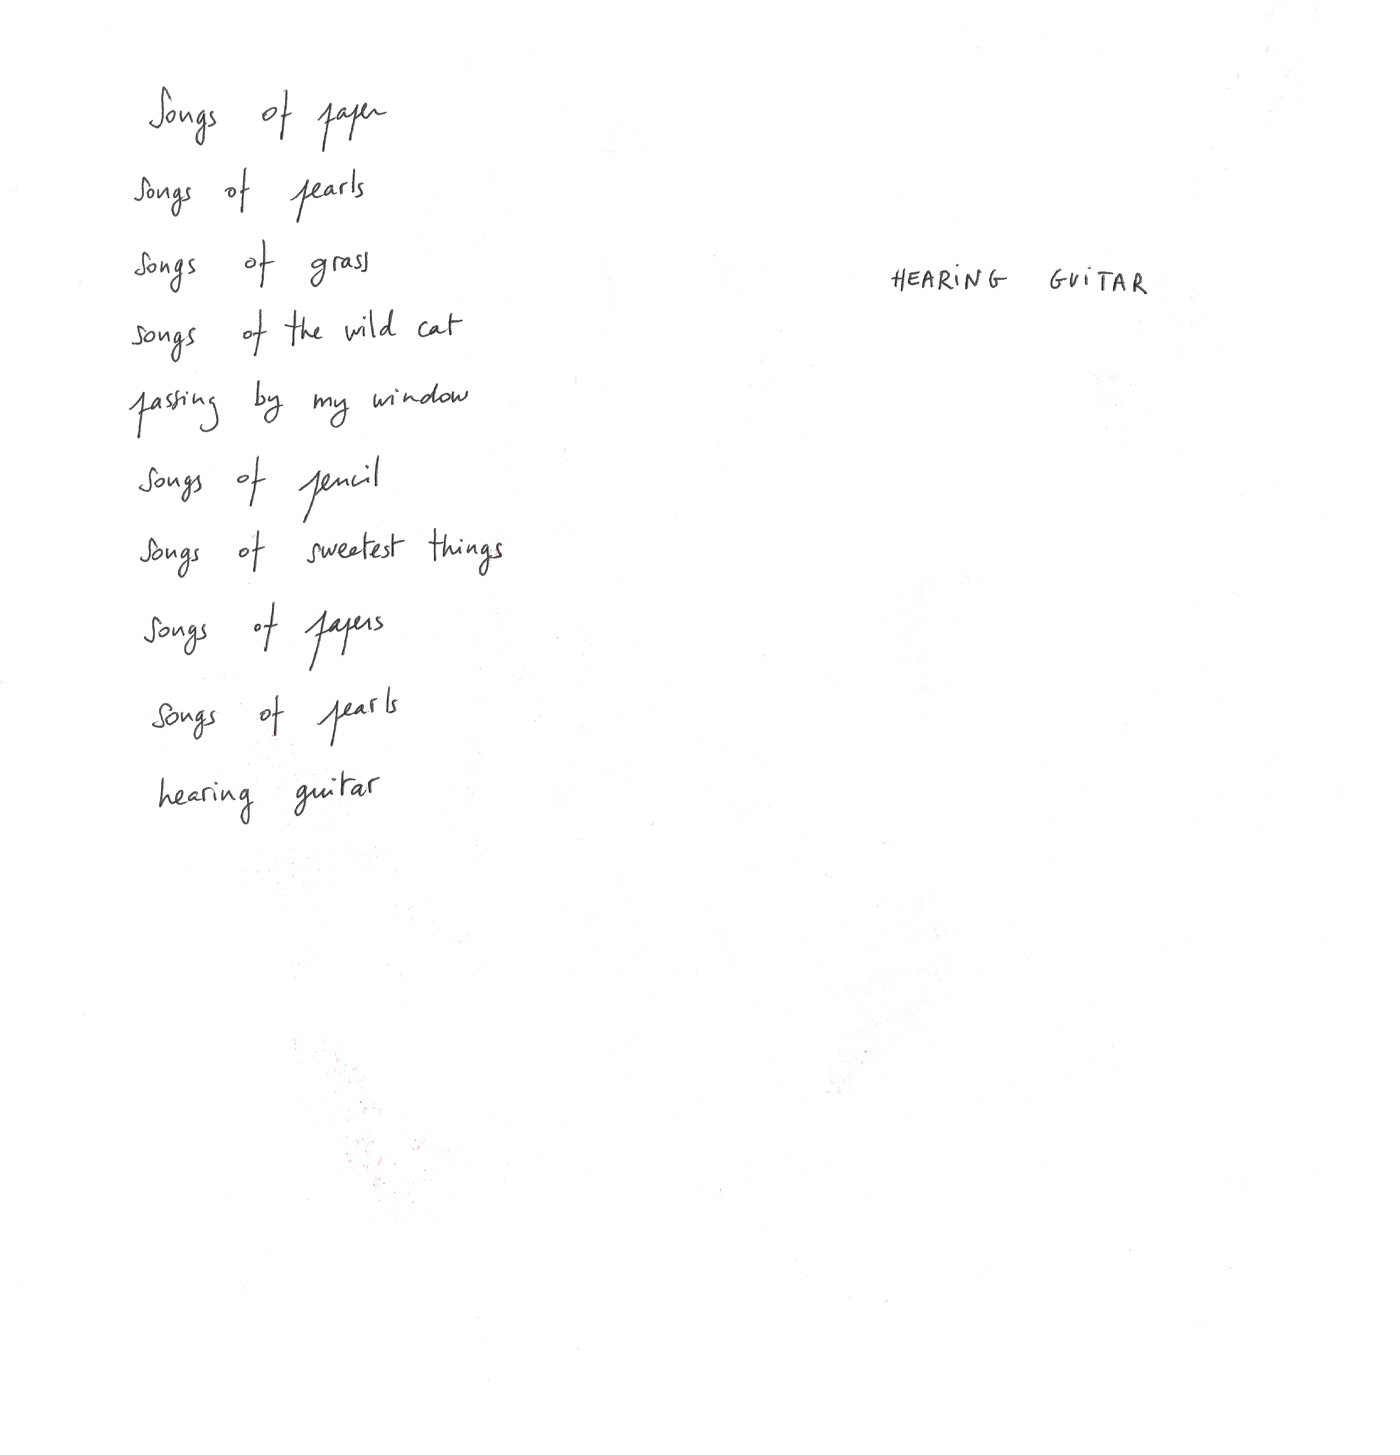 Songs of paper
Songs of pearls
Songs of grass
HEARING GUITAR
songs of the wild cat
passing by my window
Songs of pencil
Songs of sweetest things
Songs of papers
Songs of pearls
hearing guitar